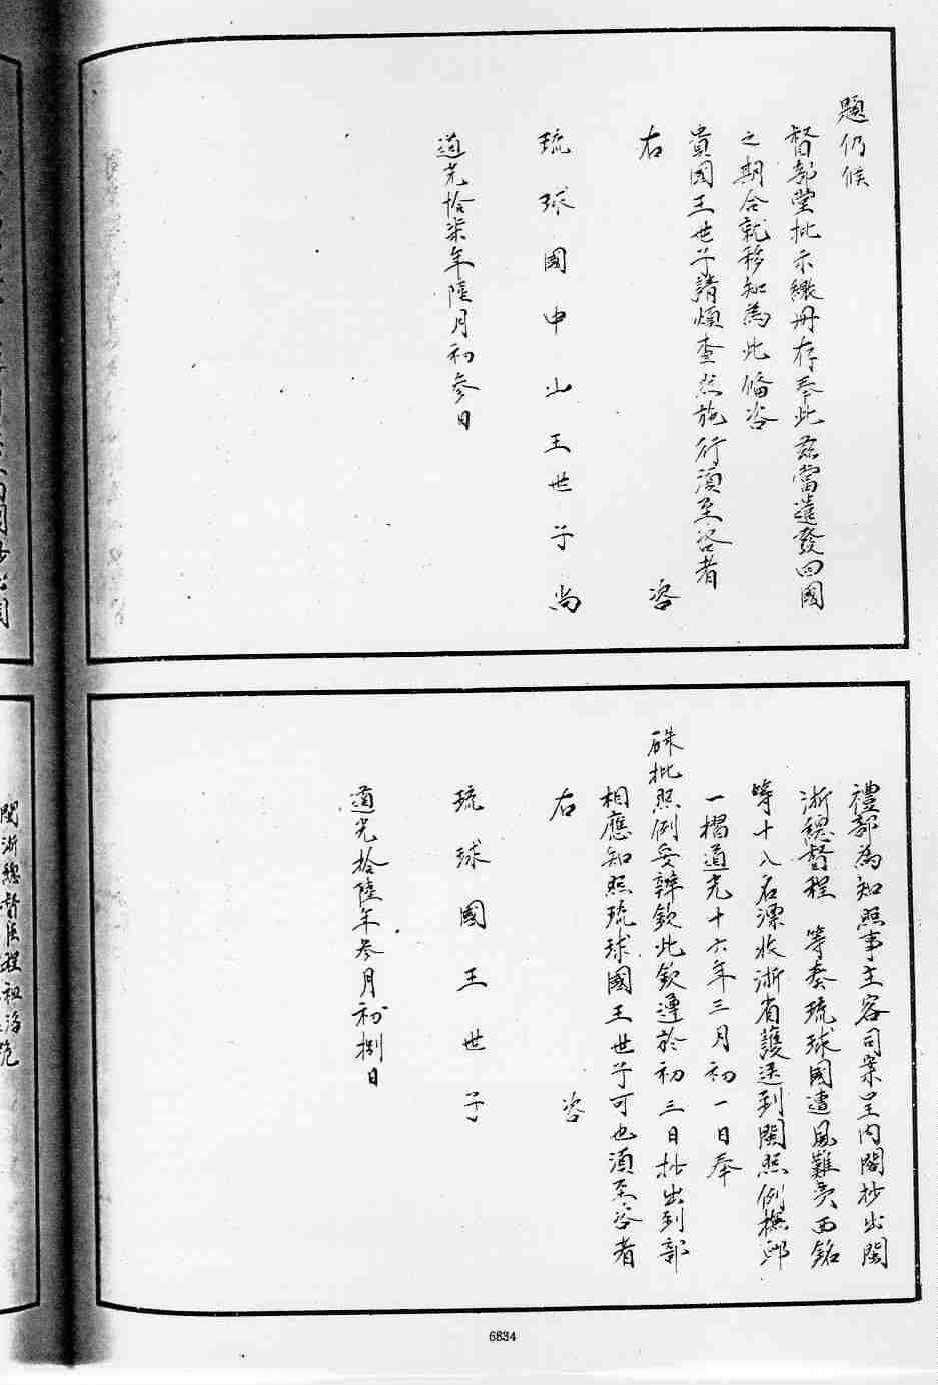 題仍候
督部堂批示繳冊存奉此茲當遣發回國
之期合就移知為此備咨
貴國王世子請煩查照施行須至咨者
右 咨
琉球國中山王世子尚
道光拾柒年陸月初參日
禮部為知照事主客司案呈內閣抄出閩
浙總督程 等奏琉球國遭風難夷西銘
等十八名漂收浙省護送到閩照例撫卹
一摺道光十六年三月初一日奉
硃批照例妥辦欽此欽遵於初三日抄出到部
相應知照琉球國王世子可也須至咨者
右 咨
琉球國王世子
道光拾陸年參月初捌日
閩浙總督臣程祖洛跪
6834